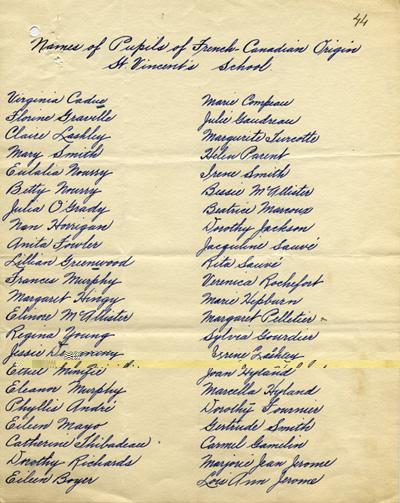 44
Names of Pupils of French-Canadian Origin
St Vincent's School.
Virginia Cadue
Florine Graville
Claire Lashley
Mary Smith
Eulalia Nourry
Betty Nourry
Julia O'Grady
Nan Horrigan
Anita Fowler
Lillian Greenwood
Frances Murphy
Margaret Hingy
Elinore McAllister
Regina Young
Jessie
Ethel
Eleanor Murphy
Phyllis André
Eileen Mayo
Catherine Thibadeau
Dorothy Richards
Eileen Boyer
Marie Compeau
Julie Gaudreau
Marguerite Turcotte
Helen Parent
Irene Smith
Bessie McAllister
Beatrice Marcoux
Dorothy Jackson
Jacquline Sauvé
Rita Sauvé
Veronica Rochefort
Marie Hepburn
Margaret Pelletier
Sylvia Gourdier
Irene Lashley
Joan Hyland
Marcella Hyland
Dorothy Fournier
Gertrude Smith
Carmel Gamelin
Marjorie Jean Jerome
Lois Ann Jerome